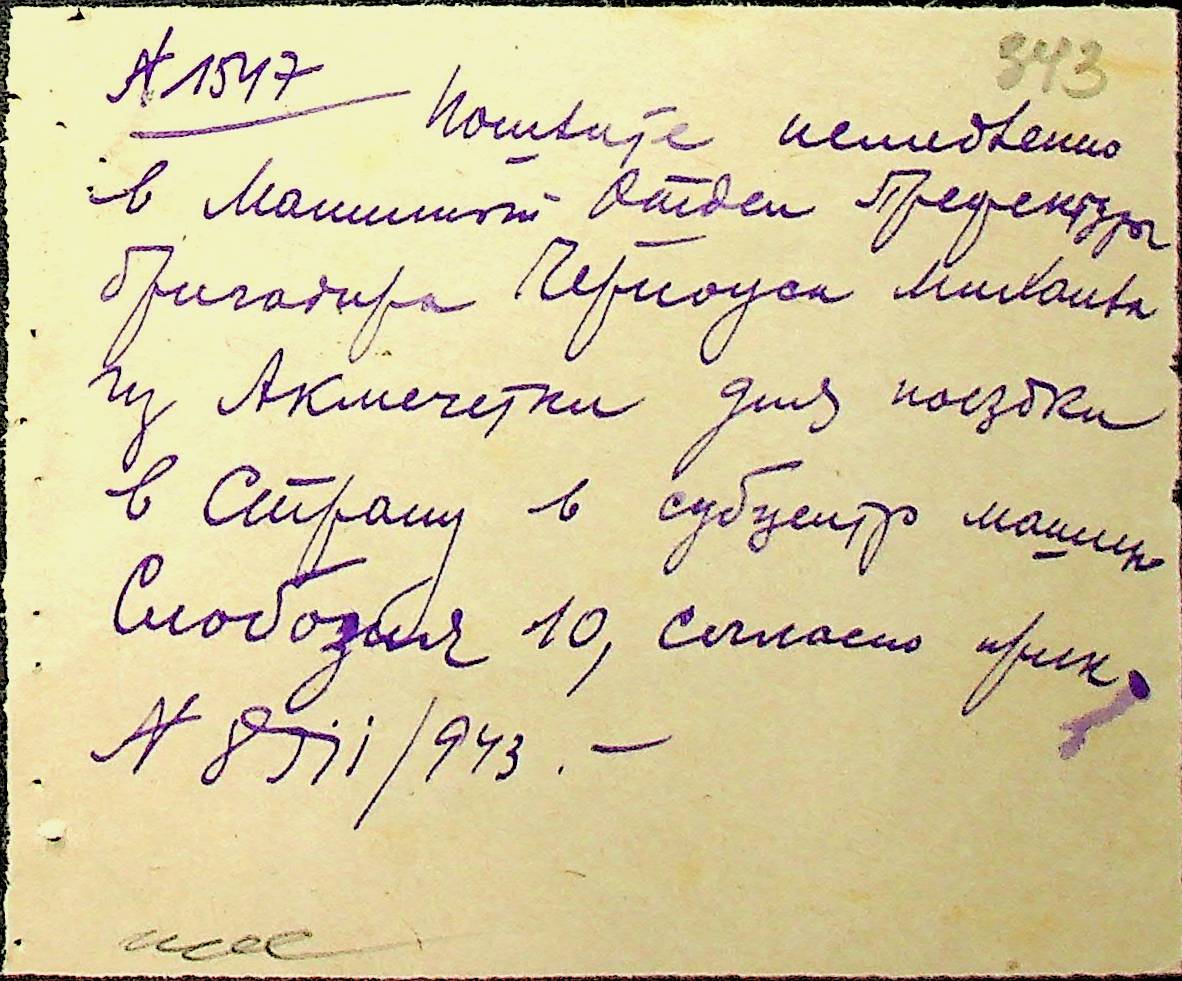 343
N 1547
Пошлите немедленно
в Машинный Отдел Префектуры
бригадира Черноуса Михаила
из Акмечетки для поездки
в Страну в субцентр машин
Слободзия 10, согласно прик.
N /943. —